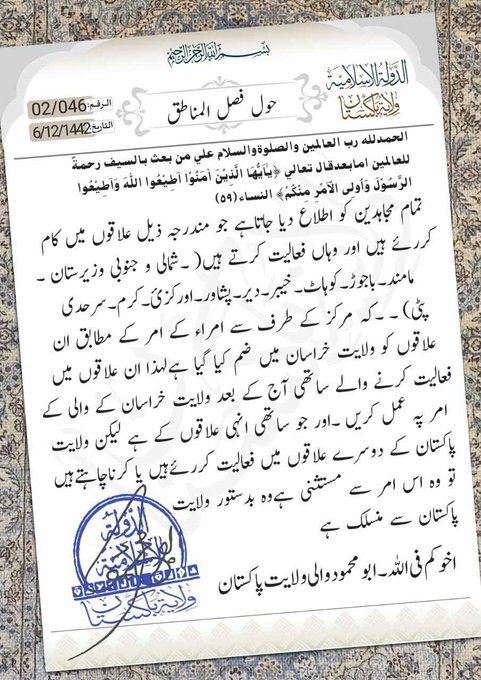 بسم الله الرحمن الرحيم
الدولة الإسلامية
ولاية باكستان
الرقم: 02/046
التاريخ: 6/12/1442
حول فصل المناطق
الحمدلله رب العالمين والصلوة والسلام علي من بعث بالسيف رحمة
للعالمين امابعد قال تعالي ﴿يٰٓاَيُّهَا الَّذِيْنَ اٰمَنُوْٓا اَطِيْعُوا اللّٰهَ وَاَطِيْعُوا
الرَّسُوْلَ وَاُولِى الْاَمْرِ مِنْكُمْ﴾ النساء (٥٩)
تمام مجاہدین کو اطلاع دیا جاتاہے جو مندرجہ ذیل علاقوں میں کام
کررئے ہیں اور وہاں فعالیت کرتے ہیں( ۔شمالی و جنوبی وزیرستان ۔
مامند۔باجوڑ۔کوہاٹ۔خیبر۔دیر۔پشاور۔اورکزئ۔کرم۔سرحدی
پٹی) ۔۔کہ مرکز کے طرف سے امراء کے امر کے مطابق ان
علاقوں کو ولایت خراسان میں ضم کیا گیا ہےلہذا ان علاقوں میں
فعالیت کرنے والے ساتھی آج کے بعد ولایت خراسان کے والی کے
امر پہ عمل کریں ۔اور جو ساتھی انہی علاقوں کے ہے لیکن ولایت
پاکستان کے دوسرے علاقوں میں فعالیت کررئےہیں یا کرناچاہتےہیں
تو وہ اس امر سے مستثنی ہےوہ بدستور ولایت
پاکستان سے منسلک ہے
اخوکم فی اللہ۔ابو محمود والی ولایت پاکستان
الدولة
الإسلامية
ولاية باكستان